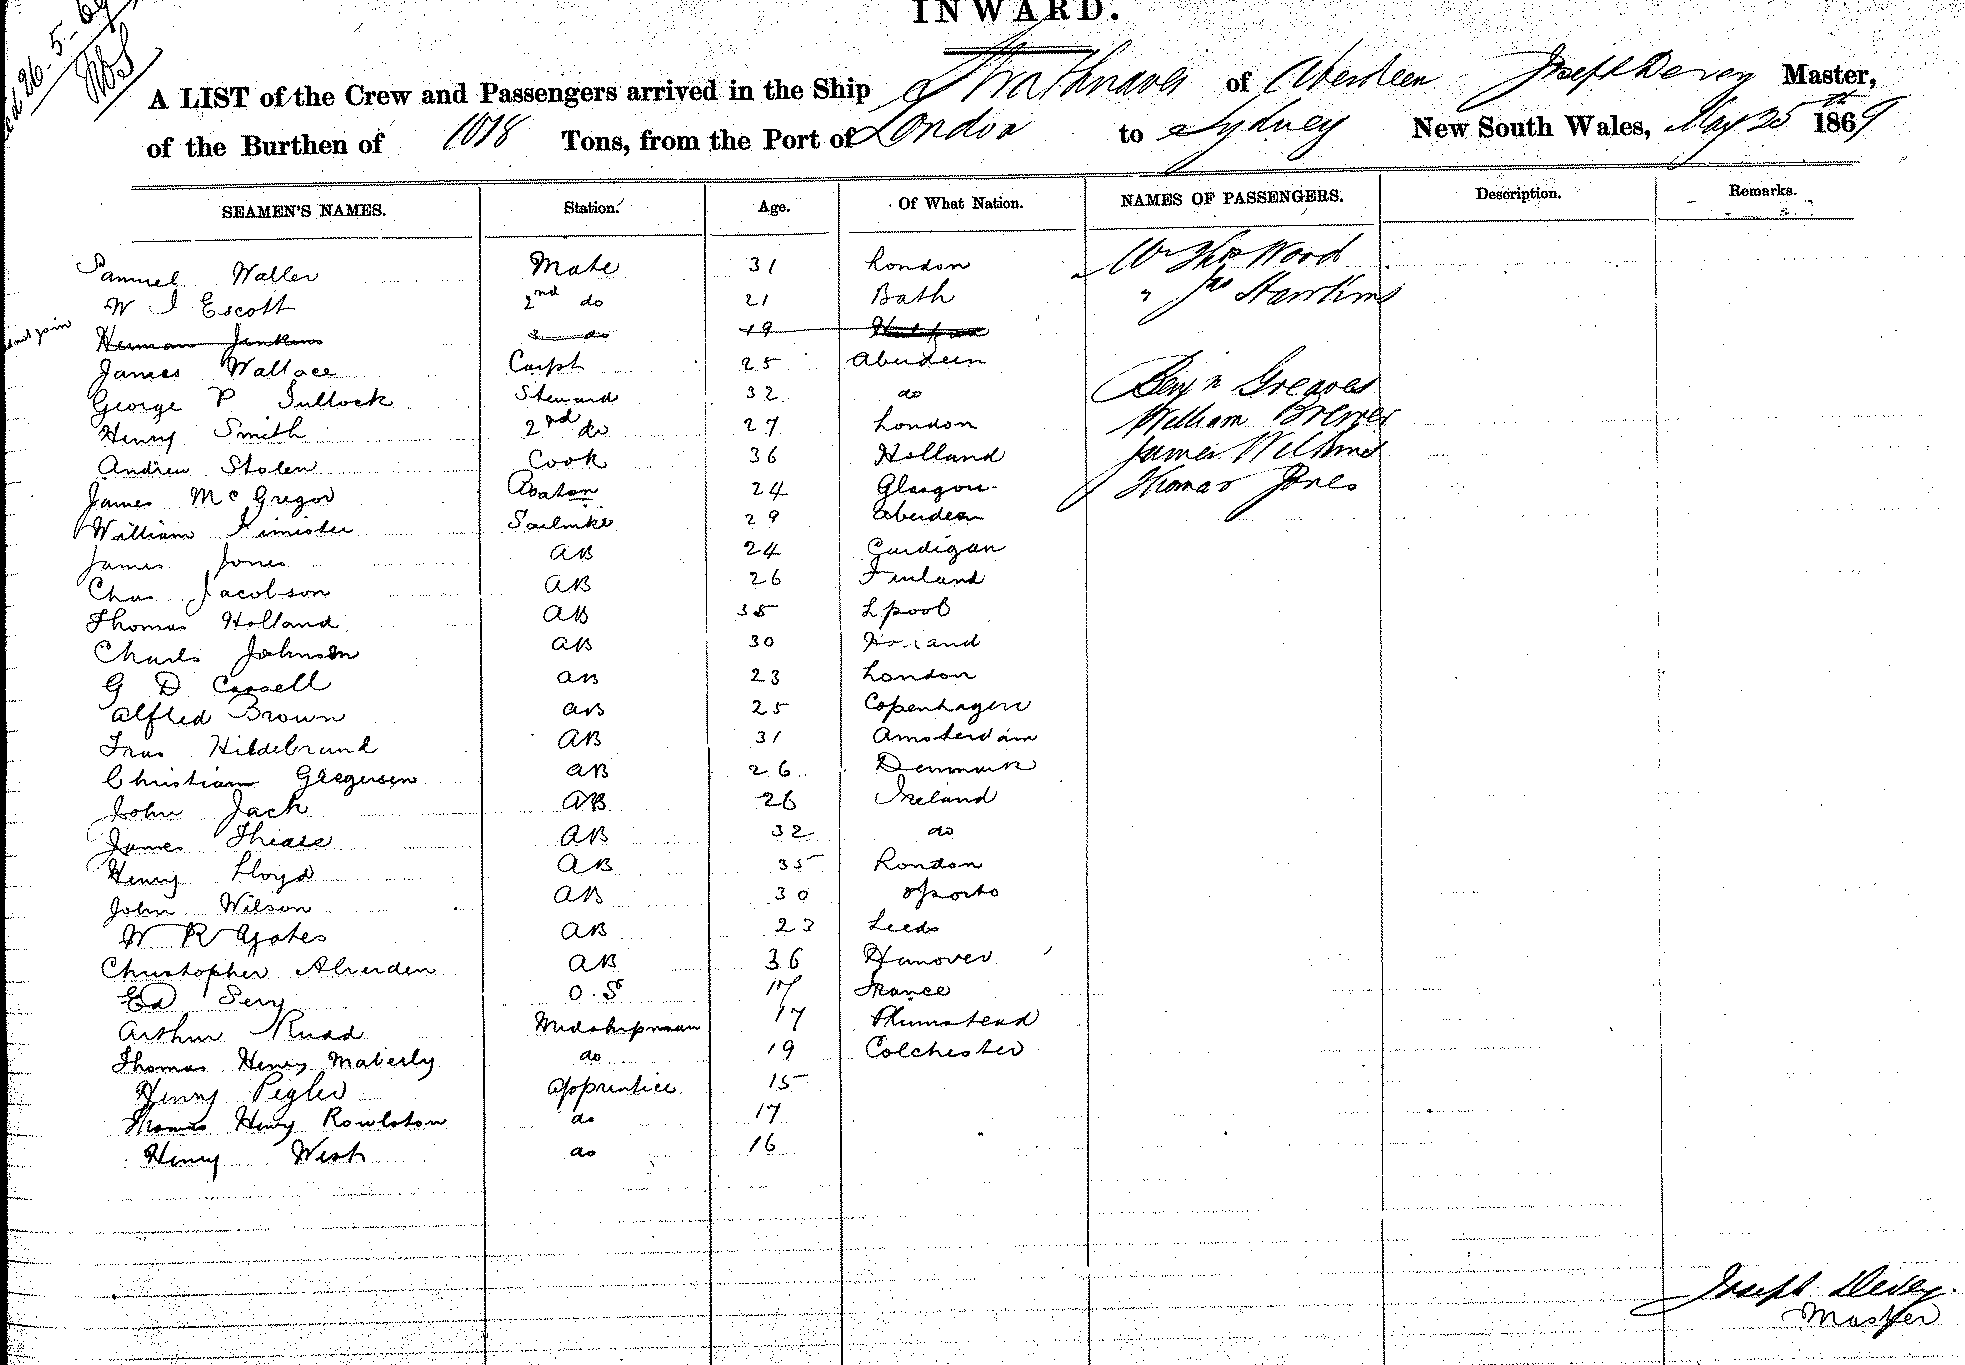 26-5-69
INWARD.
A LIST of the Crew and Passengers arrived in the Ship Strathnaver of Aberdeen Joseph Devey Master,
of the Burthen of 1018 Tons, from the Port of London to Sydney New South Wales, May 25th 1869
SEAMEN'S NAMES. Station. Age. Of What Nation. NAMES OF PASSENGERS. Description. Remarks.
Samuel Waller Mate 31 London Ward
W J Escott 2nd do 21 Bath " Jas Hawkins
Herman Jenkins 3 do 19
James Wallace Carpt 25 Aberdeen
George P Tullock Steward 32 do Benjn Greaves
Henry Smith 2nd do 27 London William Brewer
Andrew Stolen Cook 36 Holland James Wilkins
James McGregor Boatsn 24 Glasgow Thomas Jones
William Kimister Sailmkr 29 Aberdeen
James Jones AB 24 Cardigan
Chas Jacobson AB 26 Finland
Thomas Holland AB 35 Lpool
Charls Johnson AB 30
G D Cassell AB 23 London
Alfred Brown AB 25 Copenhagen
Fras Hildebrand AB 31 Amsterdam
Christian Gregersen AB 26 Denmark
John Jack AB 26 Ireland
James AB 32 do
Henry Lloyd AB 35 London
John Wilson AB 30 Oporto
W R Yates AB 23 Leeds
Christopher Alverden AB 36 Hanover
Ed Sery O.S 17 France
Arthur Rudd Midshipman 17 Plumstead
Thomas Henry Maberly do 19 Colchester
Henry Pegler Apprentice 15
Thomas Henry Rowlston do 17
Henry West do 16
Joseph Devey
Master